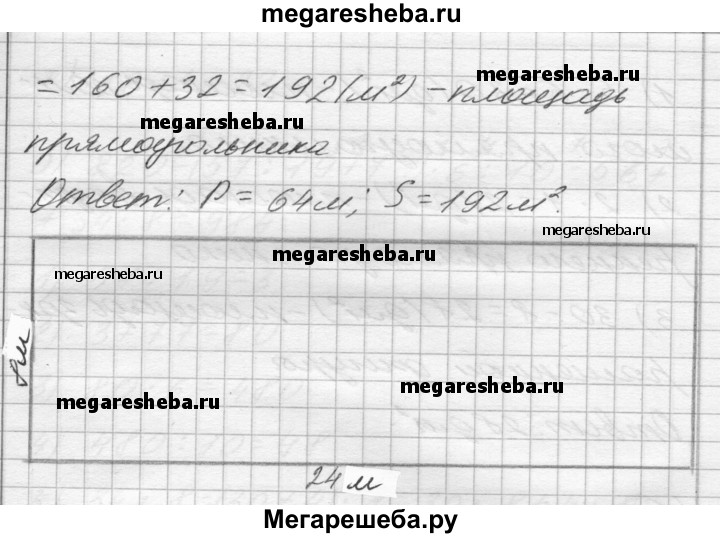 megaresheba.ru
= 160 + 32 = 192 (м²) – площадь
megaresheba.ru
megaresheba.ru
прямоугольника
Ответ: P = 64 м; S = 192 м².
megaresheba.ru
megaresheba.ru
megaresheba.ru
8 м
megaresheba.ru
megaresheba.ru
24 м
Мегарешеба.ру